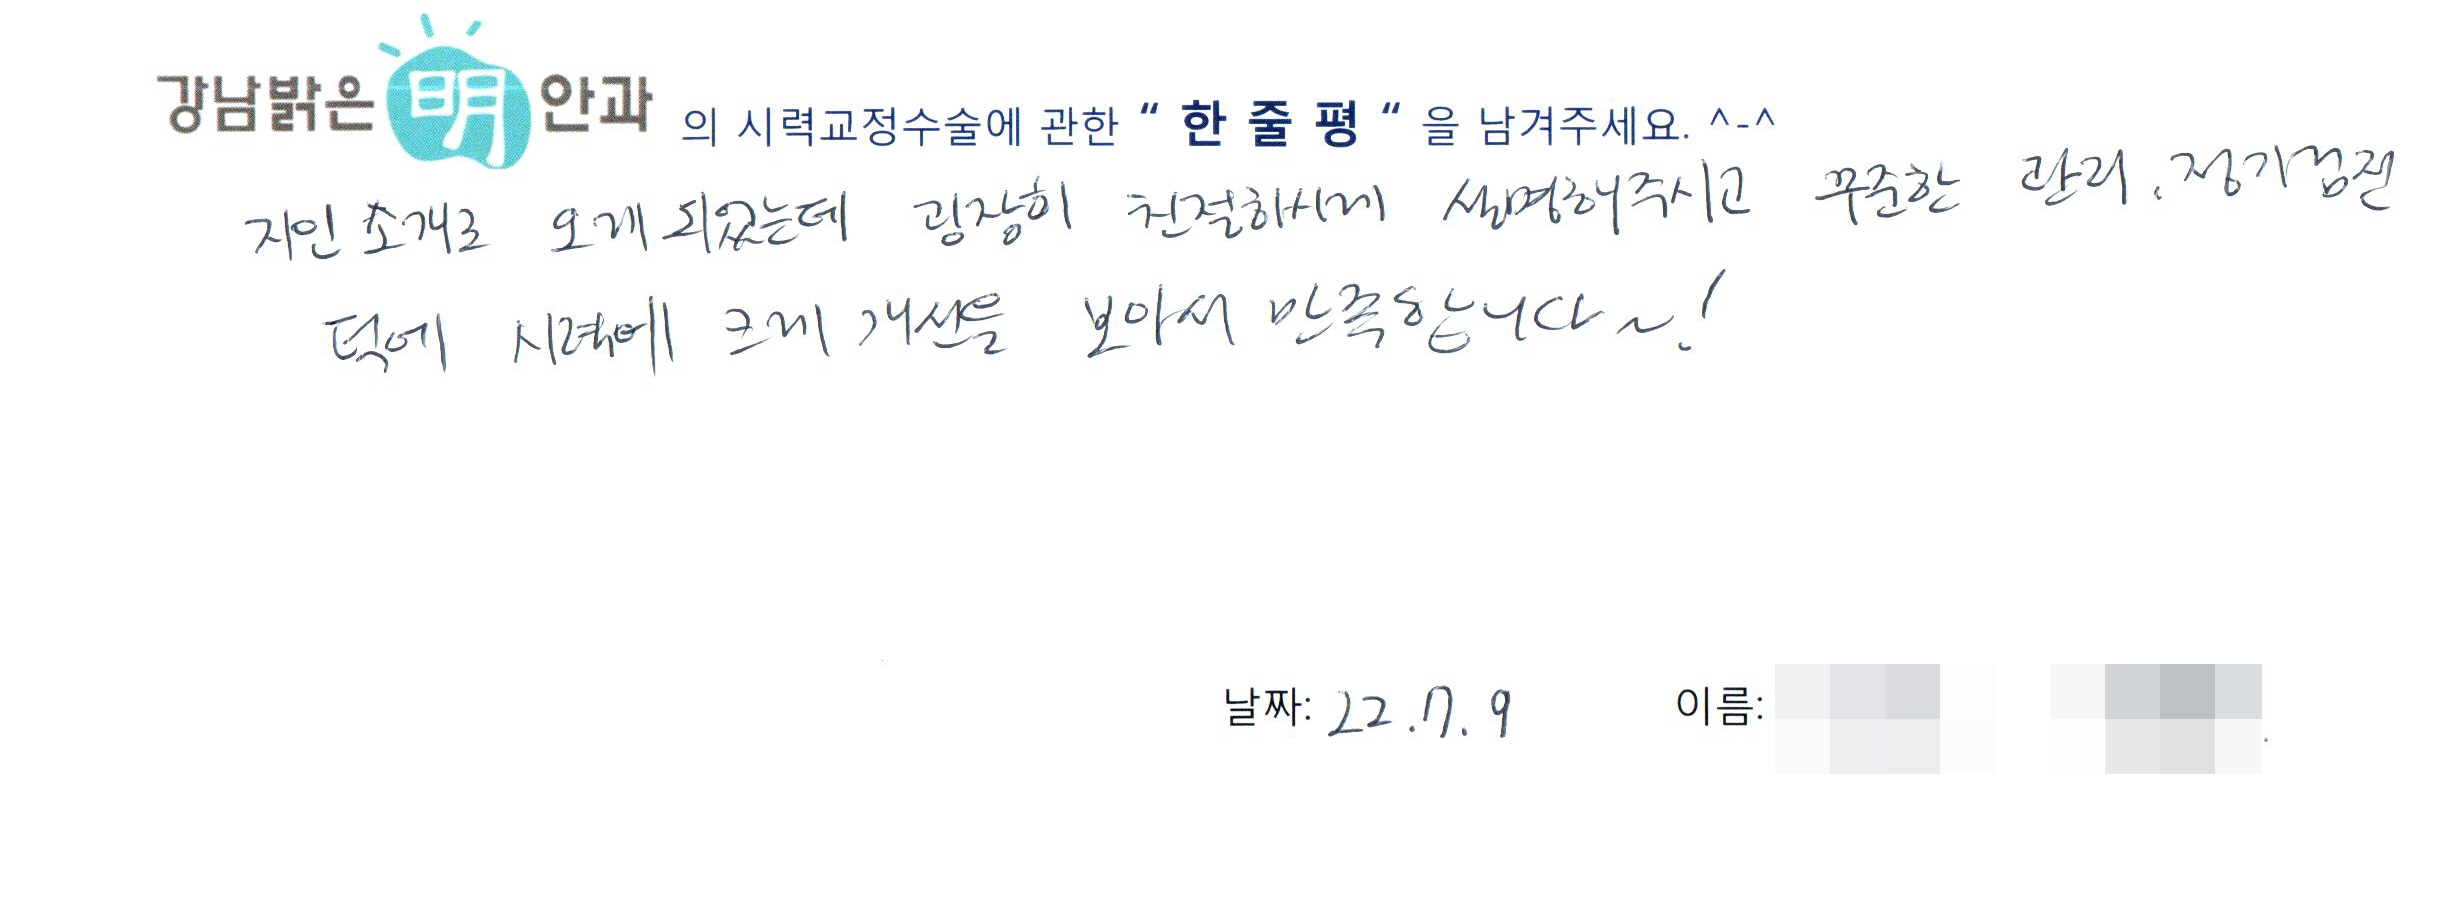 강남밝은 明 안과 의 시력교정수술에 관한 “ 한 줄 평 “ 을 남겨주세요. ^-^
지인 소개로 오게 되었는데 굉장히 친절하시게 설명해주시고 꾸준한 관리, 정기검진
덕에 시력에 크게 개선을 보아서 만족합니다~!
날짜: 22.7.9 이름: